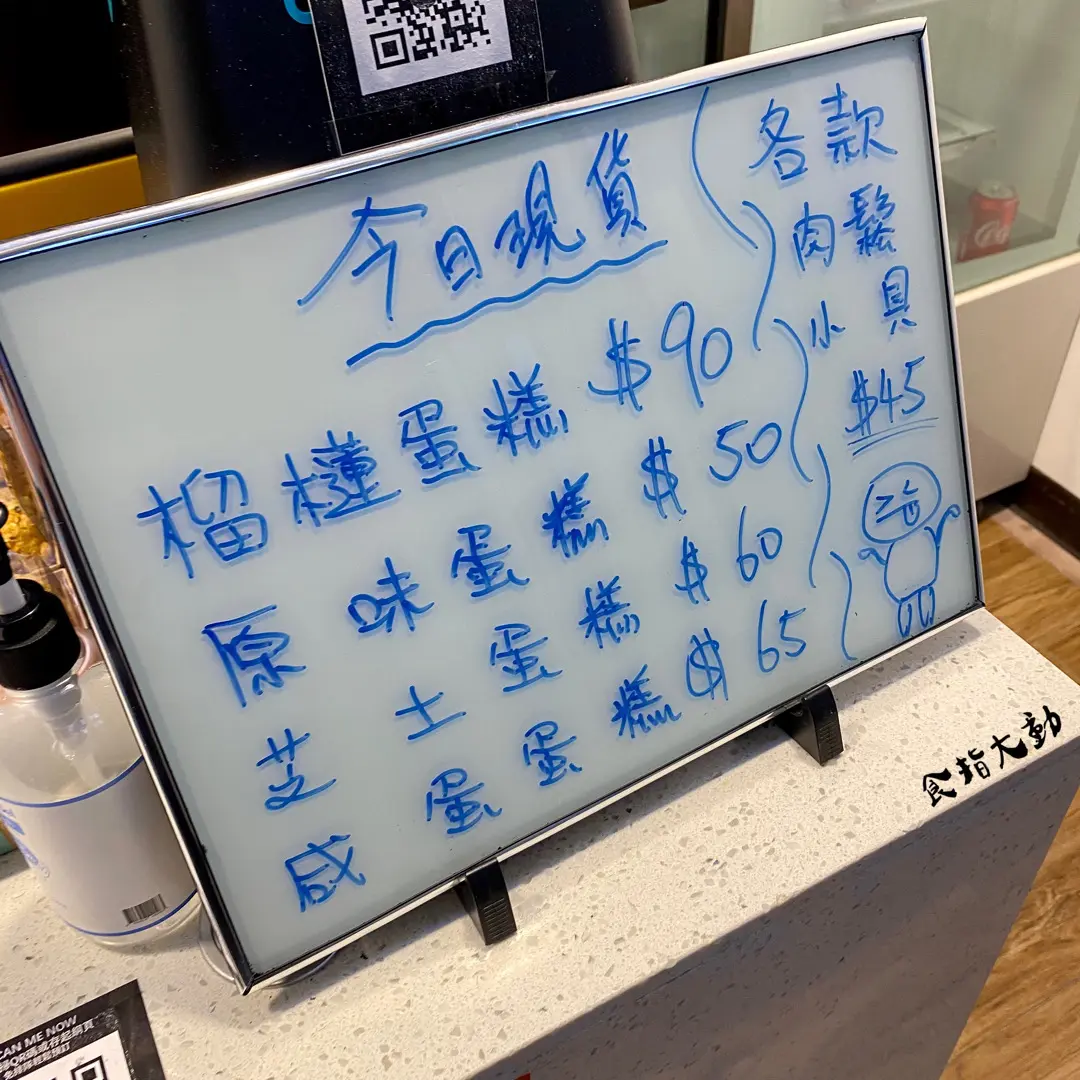 今日現貨
榴櫣蛋糕 $90
原味蛋糕 $50
芝士蛋糕 $60
咸蛋蛋糕 $65
各款
肉鬆
小貝
$45
食指大動
CAN ME NOW
QR碼或存起網頁